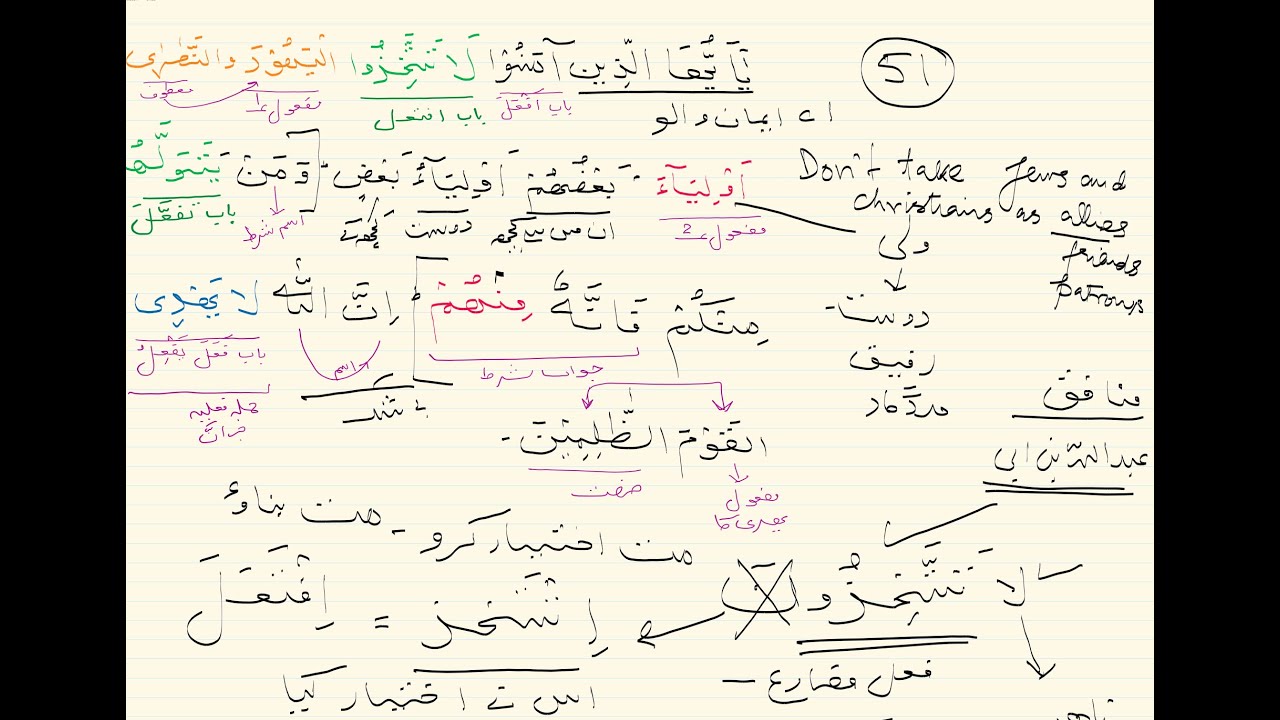 51
يَا يُّهَا الَّذِينَ آمَنُوْا لَا تَتَّخِذُوا الْيَهُوْدَ وَالنَّصٰرٰى
باب اَفْعَلَ باب افتعل مفعول 1 معطوف
اے ایمان والو
Don't take Jews and
christians as allies
friends
patrons
اَوْلِيَآءَ - بَعْضُهُمْ اَوْلِيَآءُ بَعْضٍ وَمَنْ يَتَوَلَّهُمْ
مفعول 2 ان میں سے کچھ دوست کچھ کے اسم شرط باب تَفَعَّلَ
ولی
دوست
رفیق
مددگار
مِنْكُمْ فَاِنَّهٗ مِنْهُمْ اِنَّ اللّٰهَ لَا يَهْدِى
جواب شرط اسم باب فَعَلَ يَفْعِلُ
بے شک جملہ فعلیہ
خبر انَّ
منافق
عبد اللہ بن ابی
الْقَوْمَ الظّٰلِمِيْنَ -
مفعول صفت
یھدی کا
مت اختیار کرو - مت بناؤ
لَا تَتَّخِذُوا ن اِتَّخَذَ = اِفْتَعَلَ
فعل مضارع –
اس نے اختیار کیا